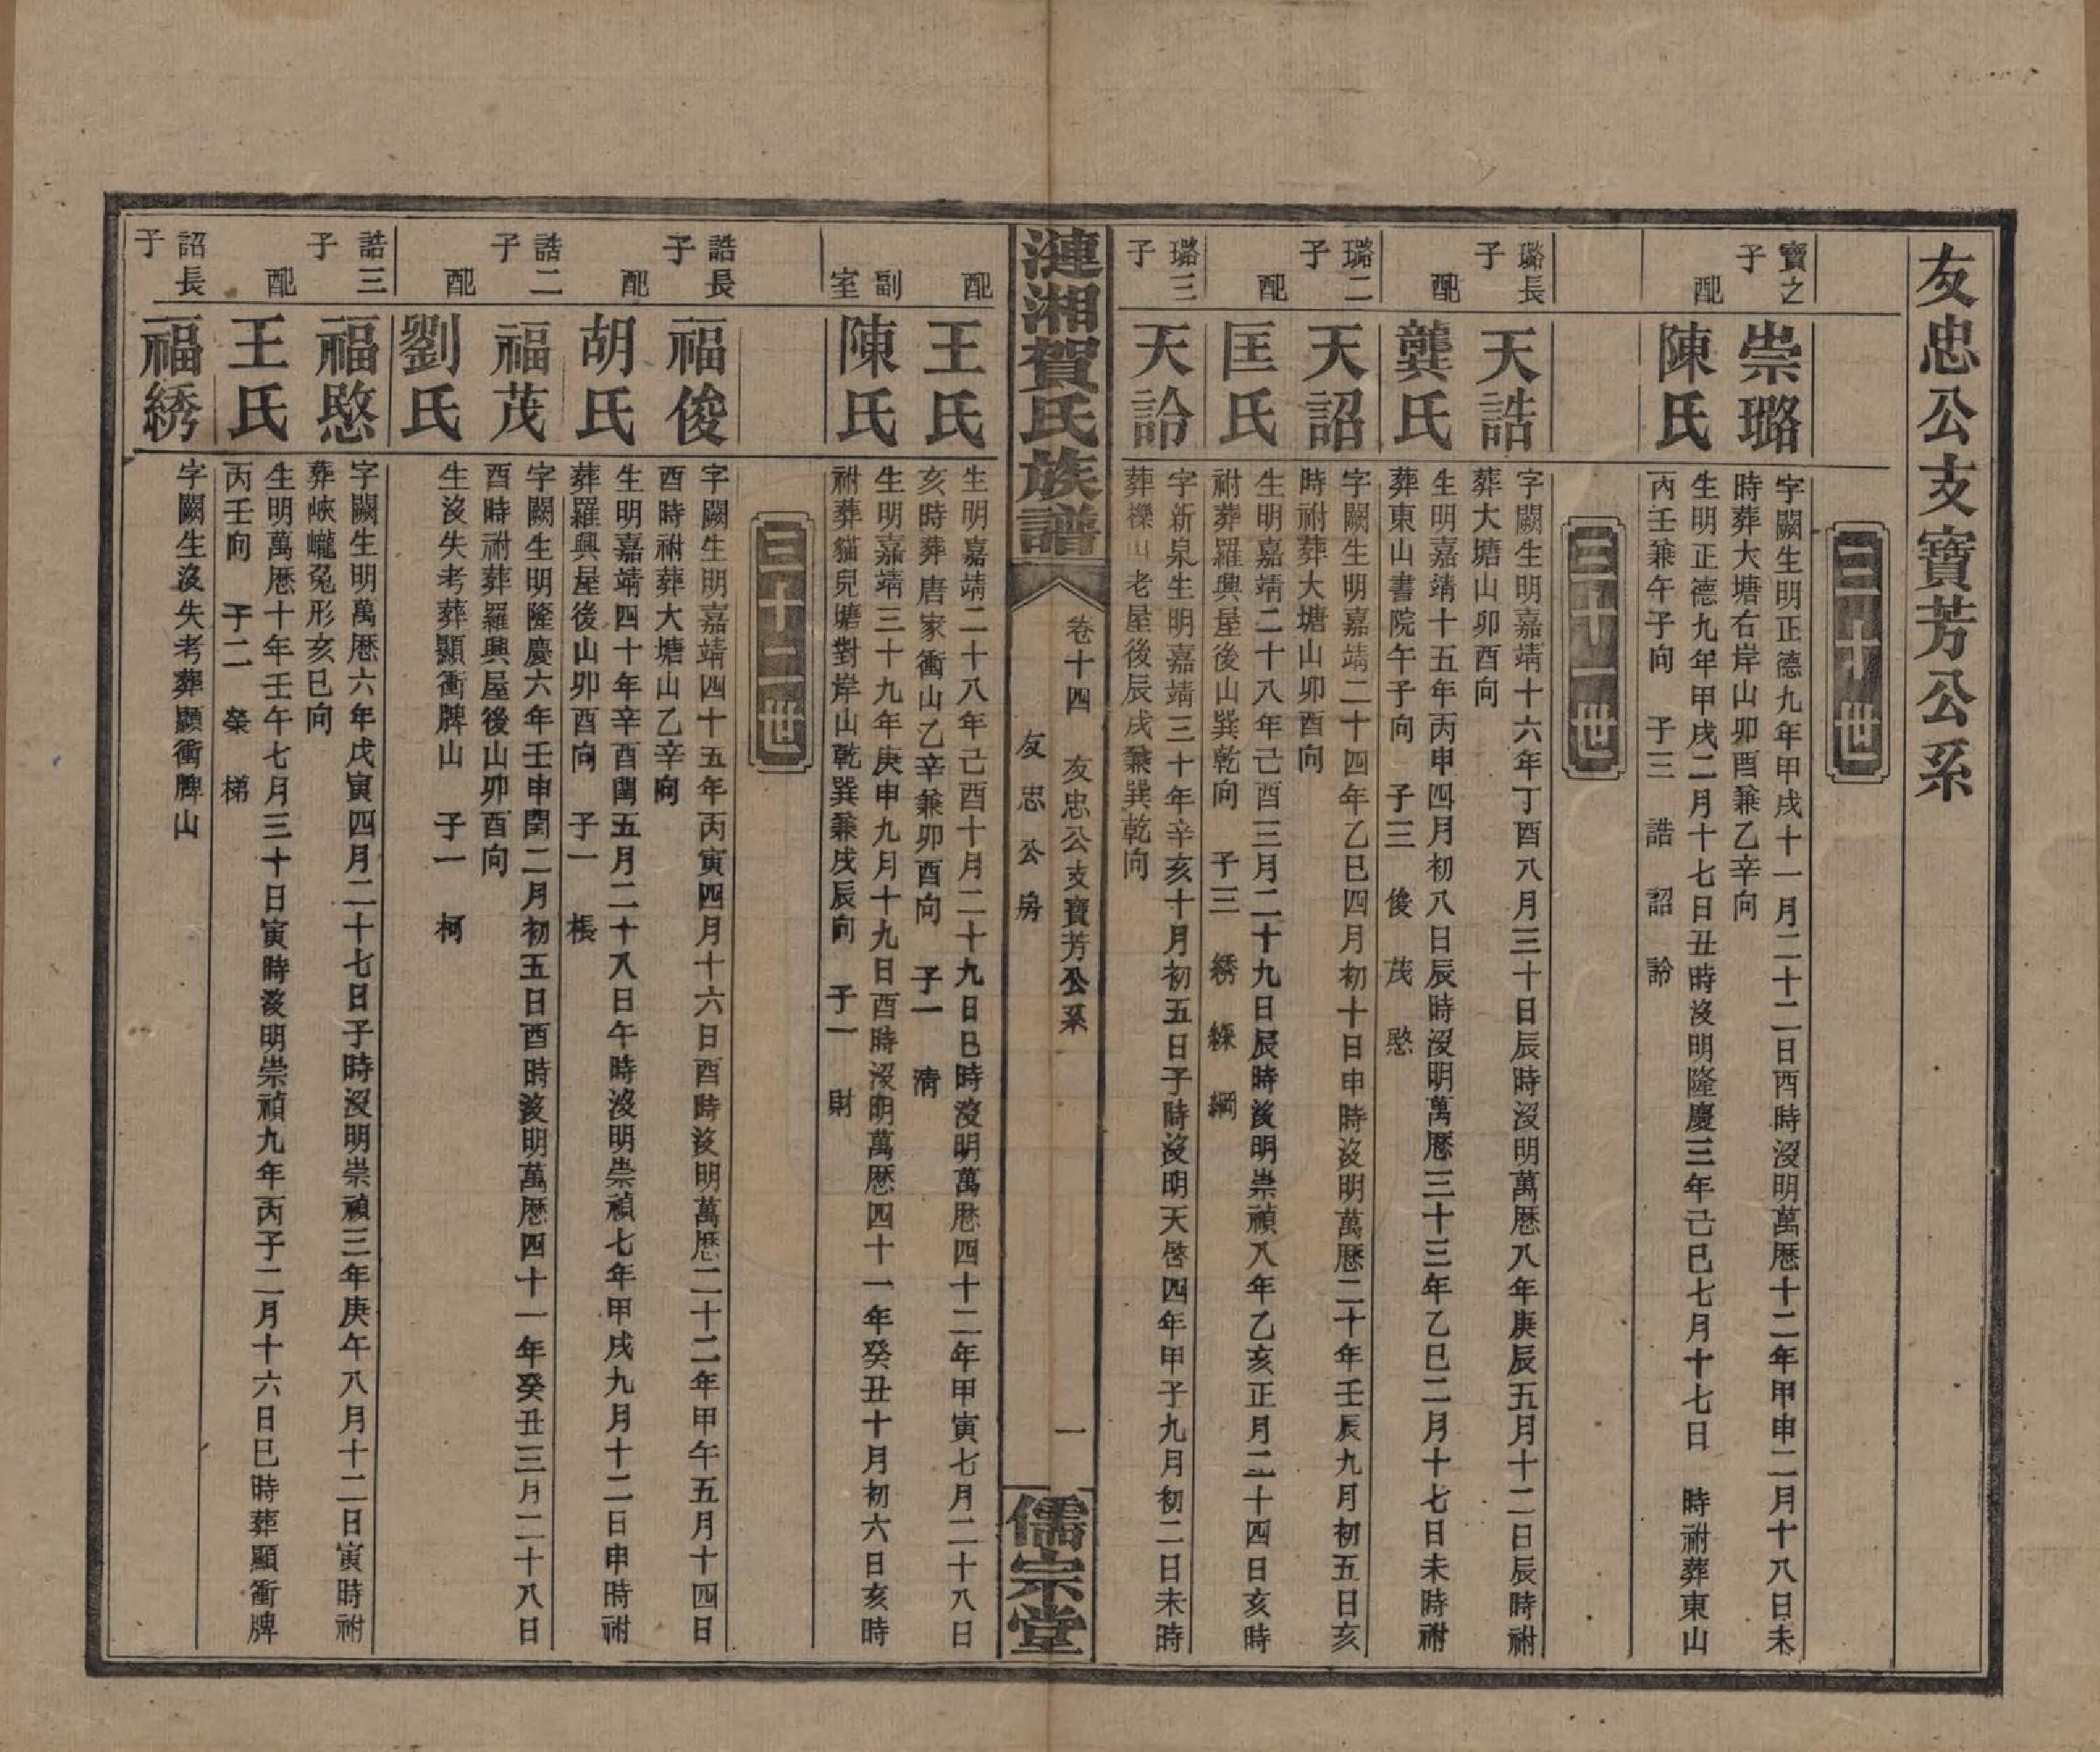 友忠公支寶芳公系
三十世
寶之子
崇璐
字闕生明正德九年甲戌十一月二十二日酉時沒明萬歷十二年甲申二月十八日未
時葬大塘右岸山卯酉兼乙辛向
配
陳氏
生明正德九年甲戌二月十七日丑時沒明隆慶三年己巳七月十七日　時祔葬東山
丙壬兼午子向　子三　誥　詔　訜
三十一世
璐長子
天誥
字闕生明嘉靖十六年丁酉八月三十日辰時沒明萬歷八年庚辰五月十二日辰時祔
葬大塘山卯酉向
配
龔氏
生明嘉靖十五年丙申四月初八日辰時沒明萬歷三十三年乙巳二月十七日未時祔
葬東山書院午子向　子三　俊　茂　愍
璐二子
天詔
字闕生明嘉靖二十四年乙巳四月初十日申時沒明萬歷二十年壬辰九月初五日亥
時祔葬大塘山卯酉向
配
匡氏
生明嘉靖二十八年己酉三月二十九日辰時沒明崇禎八年乙亥正月二十四日亥時
祔葬羅興屋後山巽乾向　子三　綉　綵　綱
璐三子
天訜
字新泉生明嘉靖三十年辛亥十月初五日子時沒明天啓四年甲子九月初二日未時
葬櫟山老屋後辰戌兼巽乾向
漣湘賀氏族譜
卷十四　友忠公支寶芳公系
友忠公房
一
儒宗堂
配
王氏
生明嘉靖二十八年己酉十月二十九日巳時沒明萬歷四十二年甲寅七月二十八日
亥時葬唐家衝山乙辛兼卯酉向　子一　清
副室
陳氏
生明嘉靖三十九年庚申九月十九日酉時沒明萬歷四十一年癸丑十月初六日亥時
祔葬貓兒塘對岸山乾巽兼戌辰向　子一　財
三十二世
誥長子
福俊
字闕生明嘉靖四十五年丙寅四月十六日酉時沒明萬歷二十二年甲午五月十四日
酉時祔葬大塘山乙辛向
配
胡氏
生明嘉靖四十年辛酉閏五月二十八日午時沒明崇禎七年甲戌九月十二日申時祔
葬羅興屋後山卯酉向　子一　棖
誥二子
福茂
字闕生明隆慶六年壬申閏二月初五日酉時沒明萬歷四十一年癸丑三月二十八日
酉時祔葬羅興屋後山卯酉向
配
劉氏
生沒失考葬顯衝牌山　子一　柯
誥三子
福愍
字闕生明萬歷六年戊寅四月二十七日子時沒明崇禎三年庚午八月十二日寅時祔
葬峽巄兔形亥巳向
配
王氏
生明萬歷十年壬午七月三十日寅時沒明崇禎九年丙子二月十六日巳時葬顯衝牌
丙壬向　子二　榮　梯
詔長子
福綉
字闕生沒失考葬顯衝牌山